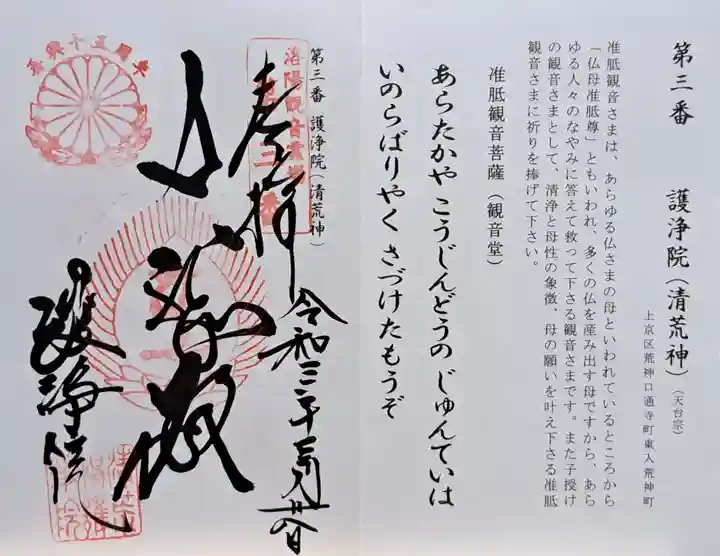 第三番 護浄院（清荒神）（天台宗）
上京区荒神口通寺町東入荒神町
准胝観音さまは、あらゆる仏さまの母といわれているところから
「仏母准胝尊」ともいわれ、多くの仏を産み出す母ですから、あら
ゆる人々のなやみに答えて救って下さる観音さまです。また子授け
の観音さまとして、清浄と母性の象徴、母の願いを叶え下さる准胝
観音さまに祈りを捧げて下さい。
准胝観音菩薩（観音堂）
あらたかや こうじんどうの じゅんていは
いのらばりやく さづけたもうぞ
第三番 護浄院（清荒神）
洛陽観音霊場
第三番
奉拝
令和三年三月廿八日
護浄院